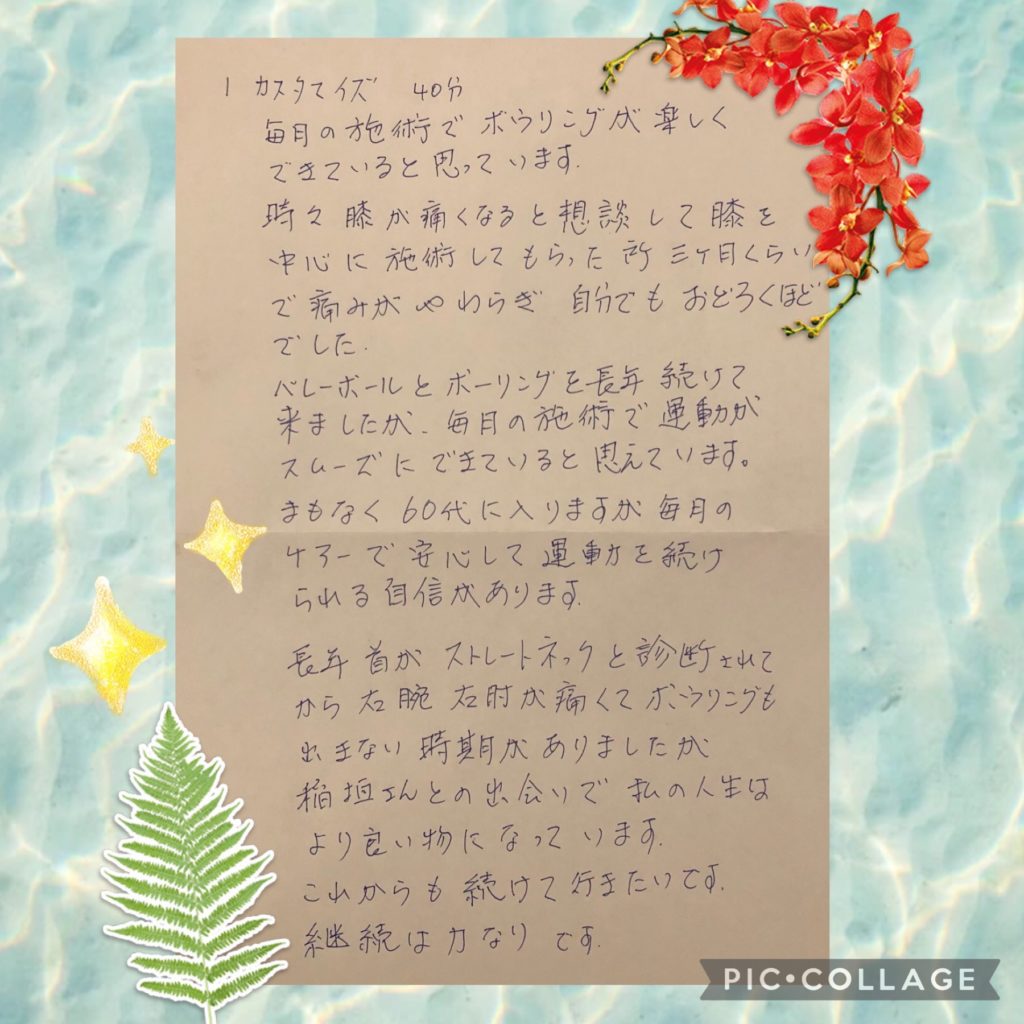 1 カスタマイズ 40分
毎月の施術で ボウリングが楽しく
できていると思っています.
時々膝が痛くなると想談して膝を
中心に施術してもらった所 三ケ目くらい
で痛みがやわらぎ 自分でも おどろくほど
でした.
バレーボールとボーリングを長年続けて
来ましたが、毎月の施術で運動が
スムーズにできていると思えています。
まもなく 60代に入りますが毎月の
ケアーで安心して運動を続け
られる自信があります.
長年首がストレートネックと診断されて
から右腕 右肘が痛くてボウリングも
出きない時期がありましたが
稲垣さんとの出会いで 私の人生は
より良い物になって います.
これからも続けて行きたいです.
継続は力なり です.
PIC•COLLAGE